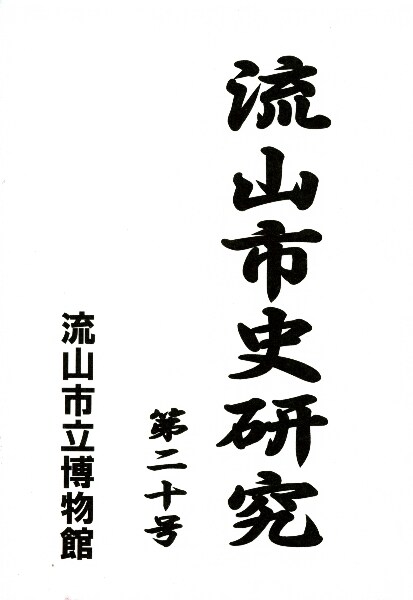 流山市史研究
第二十号
流山市立博物館